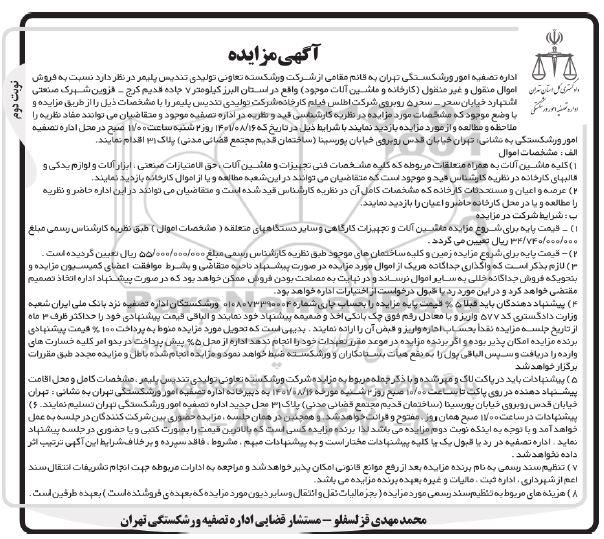 آگهی مزایده
نوبت دوم
دادگستری کل استان تهران
اداره تصفیه امور ورشکستگی
اداره تصفیه امور ورشکستگی تهران به قائم مقامی از شرکت ورشکسته تعاونی تولیدی تندیس پلیمر در نظر دارد نسبت به فروش
اموال منقول و غیر منقول (کارخانه و ماشین آلات موجود) واقع در استان البرز کیلومتر ۷ جاده قدیم کرج – قزوین شهرک صنعتی
اشتهارد خیابان سحر – سحر ۵ روبروی شرکت اطلس فیلم کارخانه شرکت تولیدی تندیس پلیمر را با مشخصات ذیل را از طریق مزایده و
با وضع موجود که مشخصات مورد مزایده در نظریه کارشناسی قید و نظریه در اداره تصفیه موجود و متقاضیان می توانند مفاد نظریه را
ملاحظه و مطالعه و از مورد مزایده بازدید نمایند با شرایط ذیل در تاریخ که ۱۴۰۱/۰۸/۱۶ روز ۲ شنبه ساعت ۱۱/۰۰ صبح در محل اداره تصفیه
امور ورشکستگی به نشانی، تهران خیابان قدس روبروی خیابان پورسینا (ساختمان قدیم مجتمع قضائی مدنی) پلاک ۳۱ اقدام نمایند.
الف : مشخصات اموال
۱) کلیه ماشین آلات به همراه متعلقات مربوطه که کلیه مشخصات فنی تجهیزات و ماشین آلات ، حق الامتیازات صنعتی ، ابزار آلات و لوازم یدکی و
قالبهای کارخانه در نظریه کارشناس قید و موجود است که متقاضیان می توانند در این شعبه مطالعه و یا از اموال کارخانه بازدید نمایند.
۲) عرصه و اعیان و مستحدثات کارخانه که مشخصات کامل آن در نظریه کارشناس قید شده است و متقاضیان می توانند در این اداره حاضر و نظریه
را مطالعه و یا در محل کارخانه حاضر و اعیان را بازدید نمایند.
ب : شرایط شرکت در مزایده
۱) – قیمت پایه برای شروع مزایده ماشین آلات و تجهیزات کارگاهی و سایر دستگاههای متعلقه ( مشخصات اموال ) طبق نظریه کارشناس رسمی مبلغ
۳۴/۷۴۰/۰۰۰/۰۰۰ ریال تعیین می گردد .
۲) – قیمت پایه برای شروع مزایده زمین و کلیه ساختمان های موجود طبق نظریه کارشناس رسمی مبلغ ۵۵/۰۰۰/۰۰۰/۰۰۰ ریال تعیین گردیده است .
۳) لازم بذکر است که واگذاری جداگانه هریک از اموال مورد مزایده در صورت پیشنهاد ناحیه متقاضی و بشرط موافقت اعضای کمیسیون مزایده و
بنحویکه فروش جداگانه خللی به سایر اموال نرساند و در نهایت به مصلحت بودن فروش ممکن خواهد بود که در صورت پیشنهاد اداره اتخاذ تصمیم
مقتضی خواهد کرد و در این مورد رد یا قبول درخواست از اختیارات اداره خواهد بود.
۴) پیشنهاد دهندگان باید قبلا ۵ % قیمت پایه مزایده را بحساب جاری شماره ۰۱۰۸۰۷۳۳۹۰۰۰۴ ورشکستگان اداره تصفیه نزد بانک ملی ایران شعبه
وزارت دادگستری کد ۵۷۷ واریز و یا معادل رقم فوق چک بانکی اخذ و ضمیمه پیشنهاد خود نمایند و الباقی قیمت پیشنهادی خود را حداکثر ظرف ۳ ماه
از تاریخ جلسه مزایده نقداً بحساب اداره واریز و قبض آن را ارائه نمایند . بدیهی است که تحویل مورد مزایده منوط به پرداخت ۱۰۰ % قیمت پیشنهادی
برنده مزایده امکان پذیر بوده و اگر برنده مزایده در موعد مقرر تعهدات خود را انجام ندهد اداره از محل ۵% پیش پرداخت در بدو امر کلیه خسارت های
وارده را دریافت و سپس الباقی پول را به نفع هیأت بستانکاران و ورشکسته ضبط خواهد نمود و مزایده انجام شده باطل و مزایده مجدد طبق مقررات
برگزار خواهد شد
۵) پیشنهادات باید در پاکت لاک و مهر شده و با ذکر جمله مربوط به مزایده شرکت ورشکسته تعاونی تولیدی تندیس پلیمر . مشخصات کامل و محل اقامت
پیشنهاد دهنده در روی پاکت تا ساعت ۱۰/۰۰ صبح روز ۲ شنبه مورخه ۱۴۰۱/۰۸/۱۶ به دبیرخانه اداره تصفیه امور ورشکستگی تهران به نشانی : تهران
خیابان قدس روبروی خیابان پورسینا (ساختمان قدیم مجتمع قضائی مدنی) پلاک ۳۱ محل جدید اداره تصفیه امور ورشکستگی تهران تسلیم نمایند. ۶)
پیشنهادات در ساعت ۱۱/۰۰ صبح همان روز . مفتوح و قرائت خواهد شد و همچنین در همان جلسه ، مزایده حضوری بین شرکت کنندگان در جلسه به عمل
خواهد آمد و با توجه به اینکه نوبت دوم مزایده می باشد لذا برنده مزایده کسی است که بالاترین قیمت را بصورت کتبی و یا حضوری در جلسه پیشنهاد
نماید . اداره تصفیه در رد یا قبول یک یا کلیه پیشنهادات مختار است و به پیشنهادات مبهم ، مشروط ، فاقد سپرده و بر خلاف شرایط این آگهی ترتیب اثر
داده نخواهد شد .
۷) تنظیم سند رسمی به نام برنده مزایده بعد از رفع موانع قانونی امکان پذیر خواهد شد و مراجعه به ادارات مربوطه جهت انجام تشریفات انتقال سند
اعم از شهرداری ، اداره ثبت ، مالیات و غیره بعهده برنده مزایده می باشد.
۸) هزینه های مربوط به تنظیم سند رسمی مورد مزایده ( بجز مالیات نقل و انتقال و سایر دیون مورد مزایده که بعهده ی فروشنده است ) بعهده طرفین است .
محمد مهدی قز لسفلو – مستشار قضایی اداره تصفیه ورشکستگی تهران